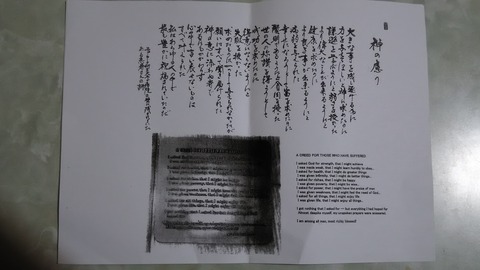 神の慮り
大きな事を成し遂げる為に
力を与えてほしいと神に求めたのに
謙遜を学ぶようにと弱さを授かった
より偉大なことが出来るようにと
健康を求めたのに
より良き事が出来るようにと
病弱を与えられた
幸せになろうとして富を求めたのに
賢明であるようにと貧困を授かった
世の人々の称賛を得ようとして
成功を求めたのに
得意にならないようにと
失敗を授かった
求めたものは一つとして与えられなかったが
願いはすべて聞き届けられた
神の意に添わぬ者で
あるにもかかわらず
心の中で言い表せないものは
すべて叶えられた
私はあらゆる人の中で
最も豊かに祝福されていたのだ
A CREED FOR THOSE WHO HAVE SUFFERED
I asked God for strength, that I might achieve
I was made weak, that I might learn humbly to obey...
I asked for health, that I might do greater things
I was given infirmity, that I might do better things...
I asked for riches, that I might be happy
I was given poverty, that I might be wise...
I asked for power, that I might have the praise of men
I was given weakness, that I might feel the need of God...
I asked for all things, that I might enjoy life
I was given life, that I might enjoy all things...
I got nothing that I asked for — but everything I had hoped for
Almost despite myself, my unspoken prayers were answered.
I am among all men, most richly blessed!